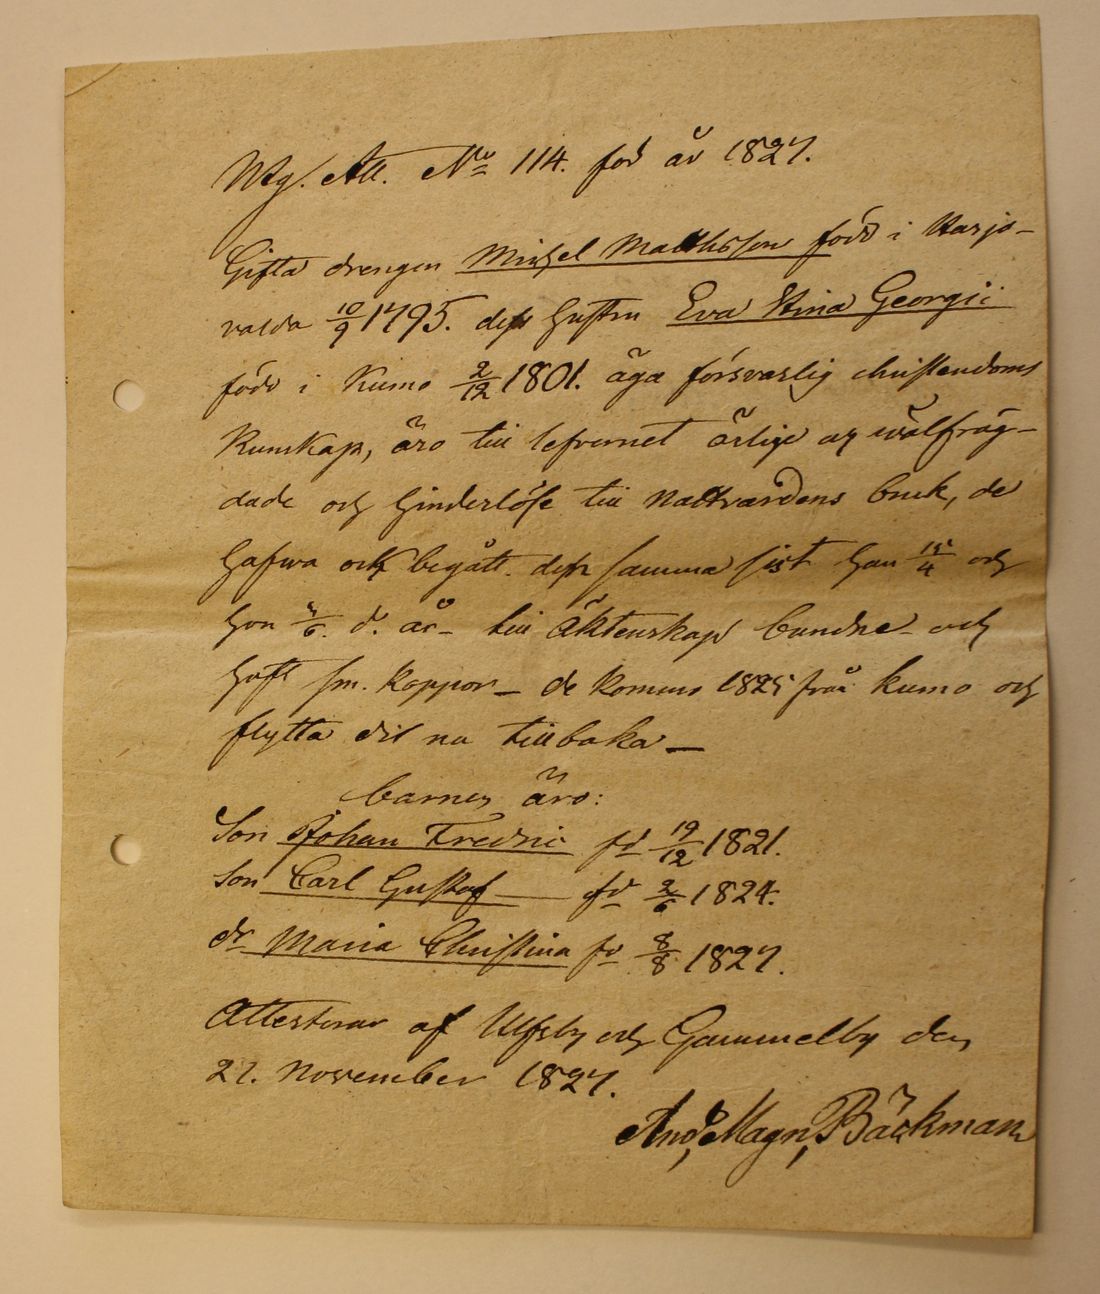 Utg. Att. No 114. för år 1827.
Gifta drengen Michel Matthsson född i Harja-
valda 10/9 1795. dess hustru Eva Stina Georgii
född i Kumo 2/12 1801. äga försvarlig christendoms
Kunskap, äro till lefvernet ärlige och wälfräg-
dade och hinderlöse till nattvardens bruk, de
hafwa ock begått dess samma sist han 15/4 och
hon /6. d. år - till äktenskap bundne - och
haft sm. koppor - de kommo 1825 från kumo och
flytta dit nu tillbaka -
barnen äro:
Son Johan Fredric fd 19/12 1821.
Son Carl Gustaf fd 2/6 1824.
dr Maria Christina fd 8/8 1827.
Attesterar af Ulfsby och Gammelby den
27. November 1827.
And. Magn. Bäckman